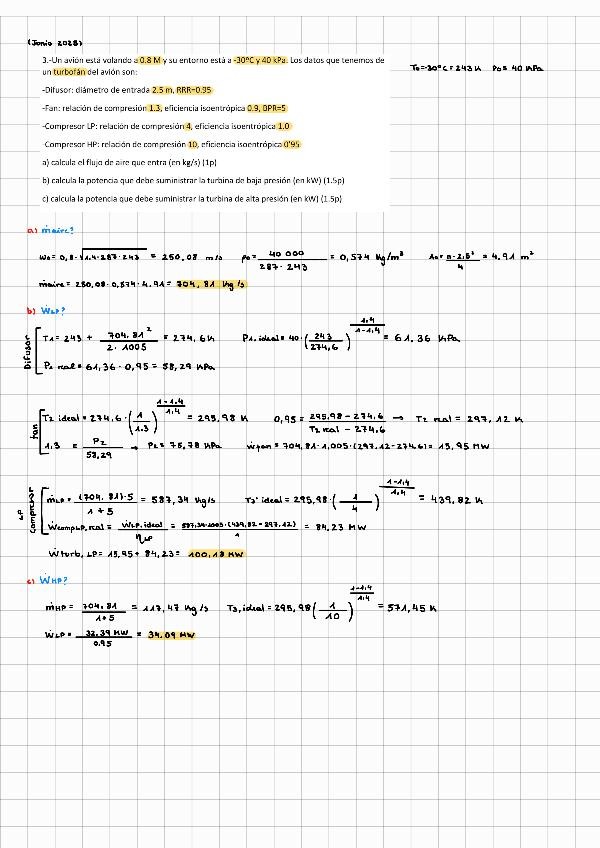 (Junio 2023)
3.-Un avión está volando a 0.8 M y su entorno está a -30ºC y 40 kPa. Los datos que tenemos de
un turbofán del avión son:
T0=-30ºC=243 K P0= 40 KPa
-Difusor: diámetro de entrada 2.5 m, RRR=0.95
-Fan: relación de compresión 1.3, eficiencia isoentrópica 0.9, BPR=5
-Compresor LP: relación de compresión 4, eficiencia isoentrópica 1.0
-Compresor HP: relación de compresión 10, eficiencia isoentrópica 0'95
a) calcula el flujo de aire que entra (en kg/s) (1p)
b) calcula la potencia que debe suministrar la turbina de baja presión (en kW) (1.5p)
c) calcula la potencia que debe suministrar la turbina de alta presión (en kW) (1.5p)
a) ṁaire?
w0= 0,8·√1.4·287·243 = 250,08 m/s ρ0= 40 000 / 287·243 = 0,574 Kg/m³ A0= π·2.5² / 4 = 4.91 m²
ṁaire= 250,08·0,574·4.91= 704,81 Kg/s
b) ẆLP?
Difusor
T1= 243 + 704.81² / 2·1005 = 274,6K P1, ideal= 40·(243 / 274,6)^(1.4 / 1-1.4) = 61.36 KPa
P1 real= 61,36·0,95= 58,29 KPa
fan
T2 ideal= 274,6·(1 / 1.3)^(1-1.4 / 1.4) = 295,98 K 0,95= 295,98-274,6 / T2 real - 274,6 → T2 real= 297,12 K
1.3 = P2 / 58,29 → P2= 75,78 KPa Ẇfan= 704,81·1,005·(297,12-274,6)= 15,95 MW
LP compresor
ṁLP= (704.81)·5 / 1+5 = 587,34 Kg/s T3' ideal= 295,98·(1 / 4)^(1-1.4 / 1.4) = 439,82 K
ẆcompLP, real= ẆLP, ideal / ηLP = 587,34·1005·(439,82-297,12) / 1 = 84,23 MW
Ẇturb, LP= 15,95+ 84,23= 100,18 MW
c) ẆHP?
ṁHP= 704.81 / 1+5 = 117,47 Kg/s T3, ideal= 295,98(1 / 10)^(1-1.4 / 1.4) = 571,45 K
ẆLP= 32.39 MW / 0.95 = 34.09 MW